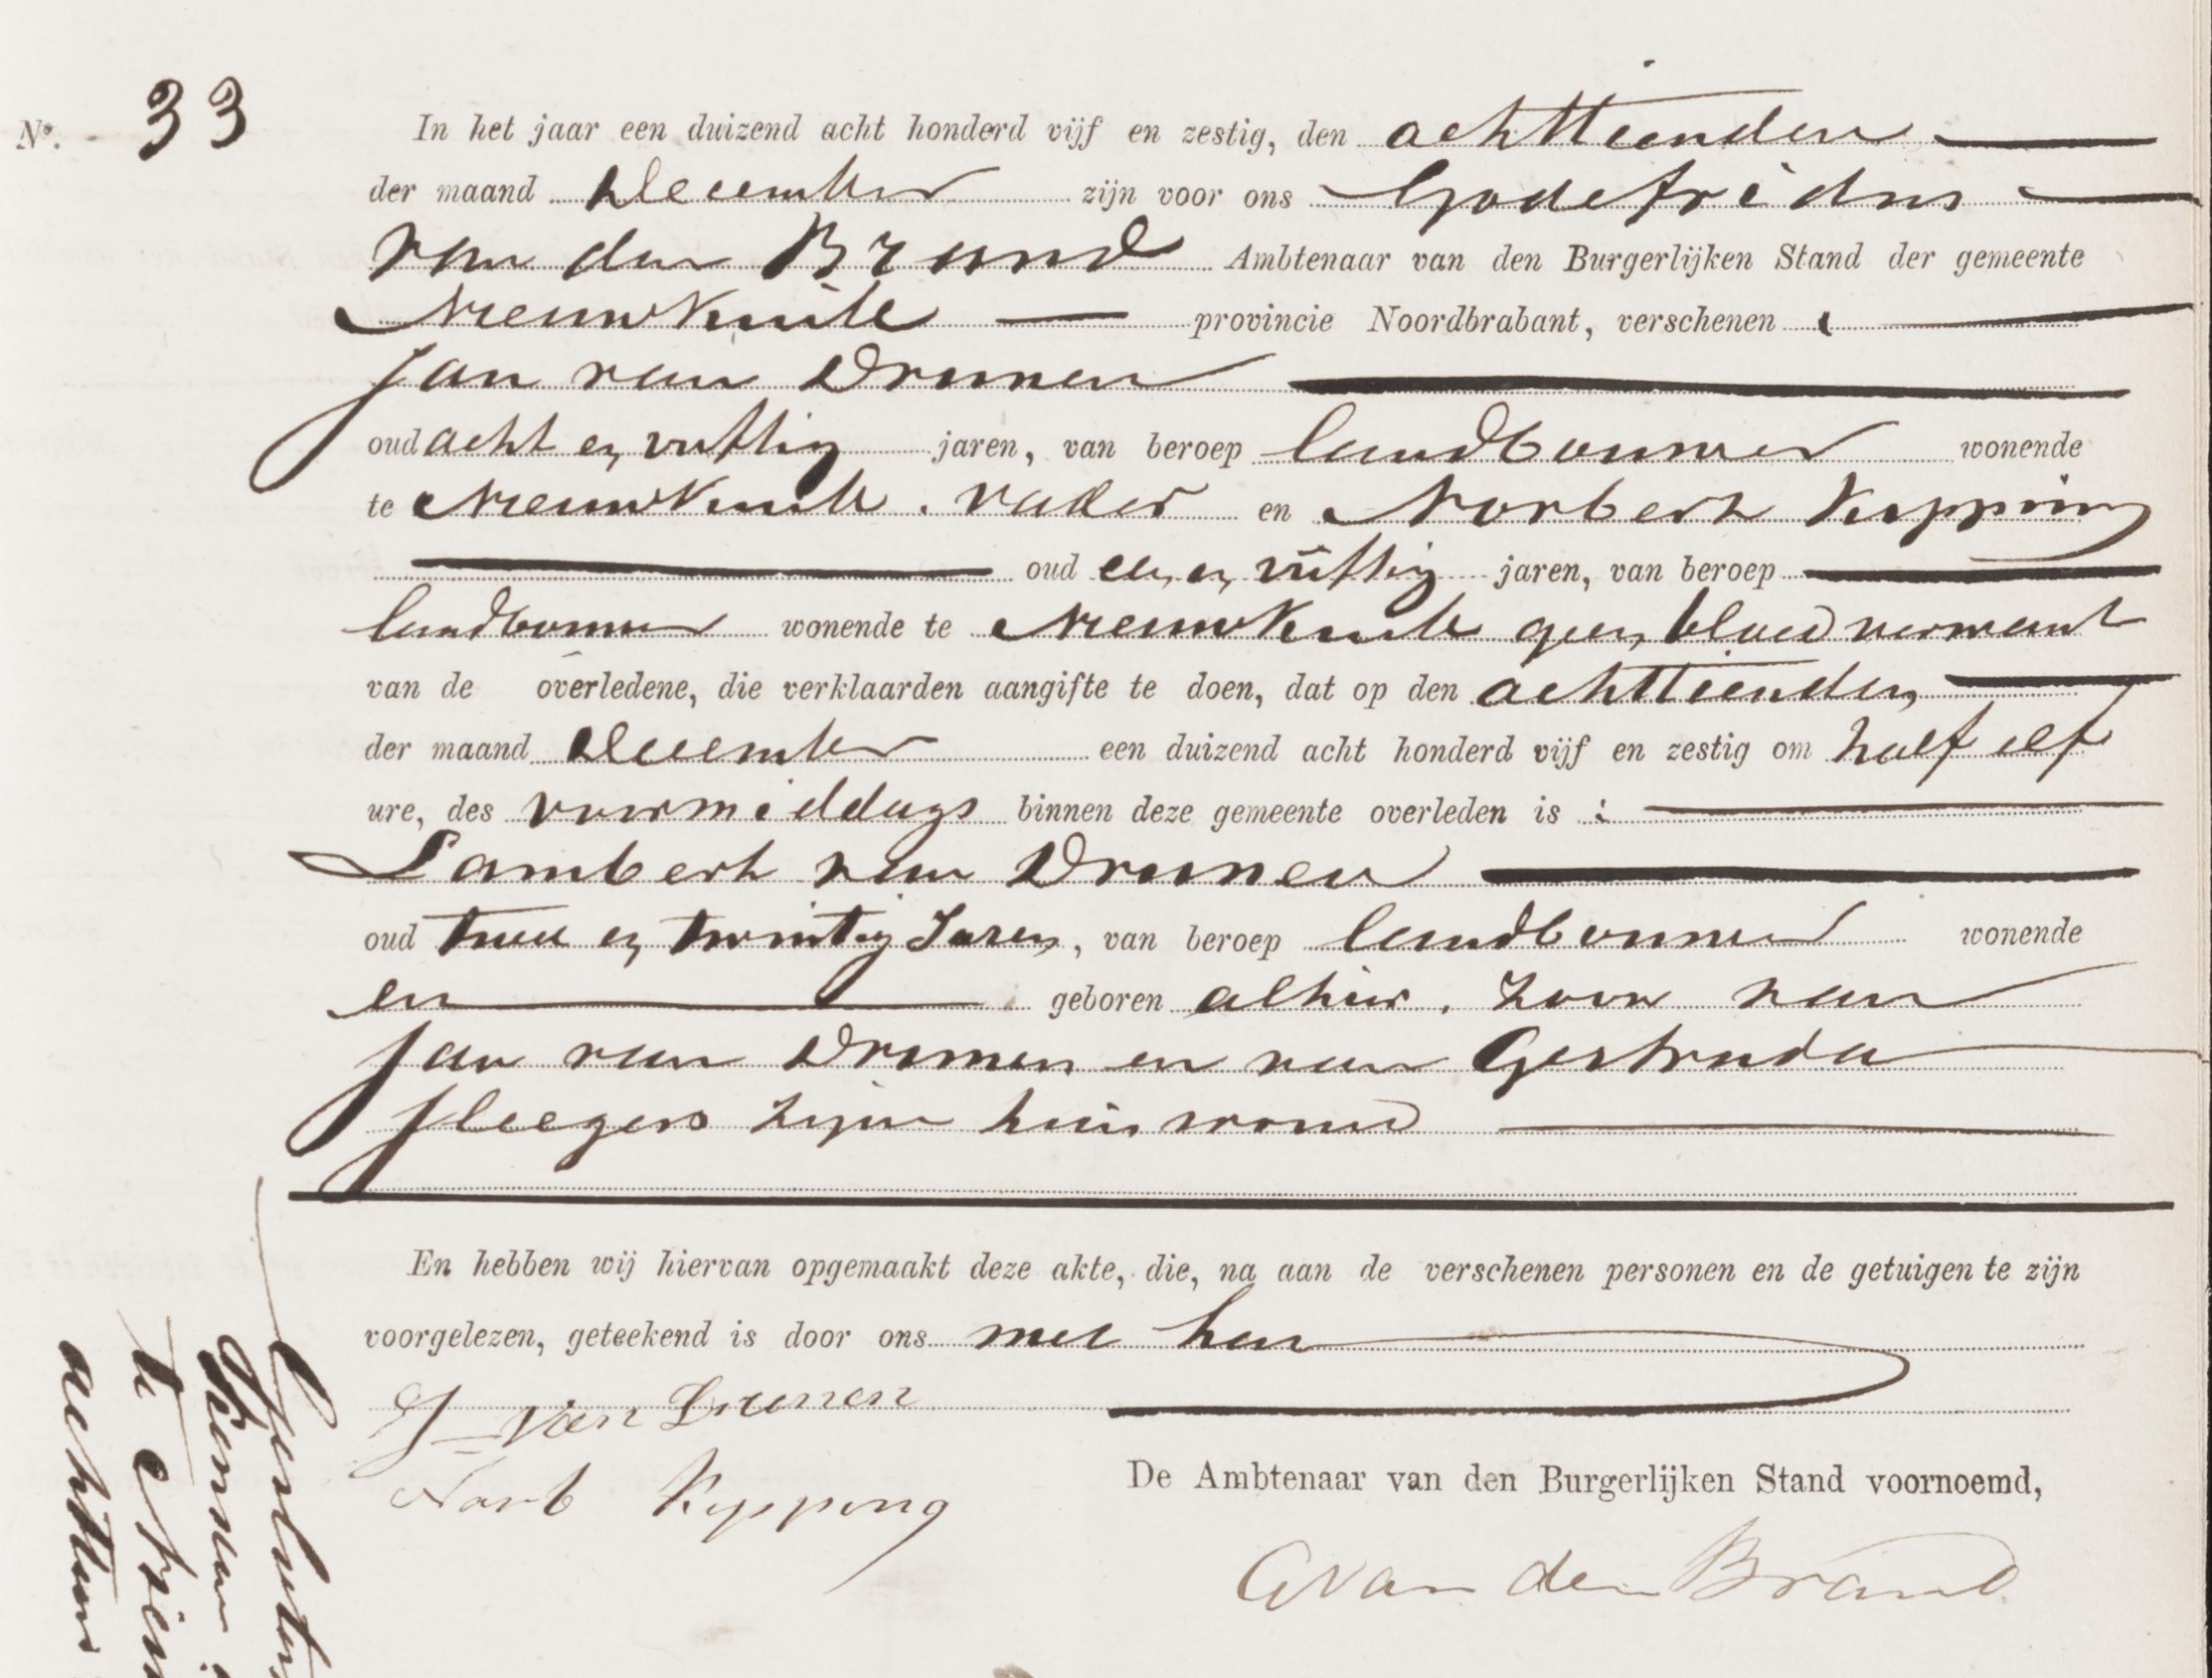 N°. 33
In het jaar een duizend acht honderd vijf en zestig, den achttienden
der maand December zijn voor ons Godefridus
van den Brand Ambtenaar van den Burgerlijken Stand der gemeente
Nieuwkuik provincie Noordbrabant, verschenen :
Jan van Drunen
oud acht en vijftig jaren, van beroep landbouwer wonende
te Nieuwkuik. vader en Norbert Kipping
oud een en vijftig jaren, van beroep
landbouwer wonende te Nieuwkuik geen bloedverwant
van de overledene, die verklaarden aangifte te doen, dat op den achttienden
der maand December een duizend acht honderd vijf en zestig om half elf
ure, des voormiddags binnen deze gemeente overleden is :
Lambert van Drunen
oud twee en twintig Jaren, van beroep landbouwer wonende
en geboren alhier. zoon van
Jan van Drunen en van Gertruda
Sleegers zijne huisvrouw
En hebben wij hiervan opgemaakt deze akte, die, na aan de verschenen personen en de getuigen te zijn
voorgelezen, geteekend is door ons met hen
J van Drunen
Norb Kipping
De Ambtenaar van den Burgerlijken Stand voornoemd,
G van den Brand